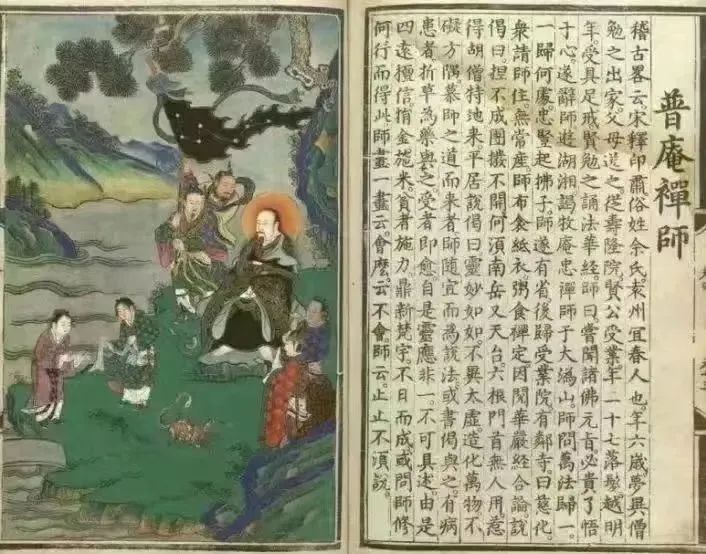 普庵禪師
稽古畧云宋釋印肅俗姓余氏袁州宜春人也。年六歲夢異僧
勉之出家。父母送之。從壽隆院賢公受業。年二十七落髮。越明
年。受具足戒。賢勉之誦法華經。師曰。嘗聞諸佛元旨。必貴了悟
于心。遂辭師遊湖湘謁牧庵忠禪師于大溈山。師問萬法歸一。
一歸何處。忠豎起拂子。師遂有省。後歸受業院。有鄰寺。曰慈化。
衆請師住。無常產。師布衾紙衣。粥食禪定。因閱華嚴經合論。說
偈曰。捏不成團撥不開。何須南岳又天台。六根門首無人用。惹
得胡僧特地來。平居說偈曰。靈妙如如。不異太虛。造化萬物。不
礙方隅。慕師之道而來者。師隨宜而為說法。或書偈與之。有病
患者。折草為藥與之。受者即愈。自是靈應非一。不可具述。由是
四遠檀信。捐金施米。貧者施力。鼎新梵宇。不日而成。或問師。修
何行而得此。師畫一畫云。會麼。云不會。師云。止止不須說。